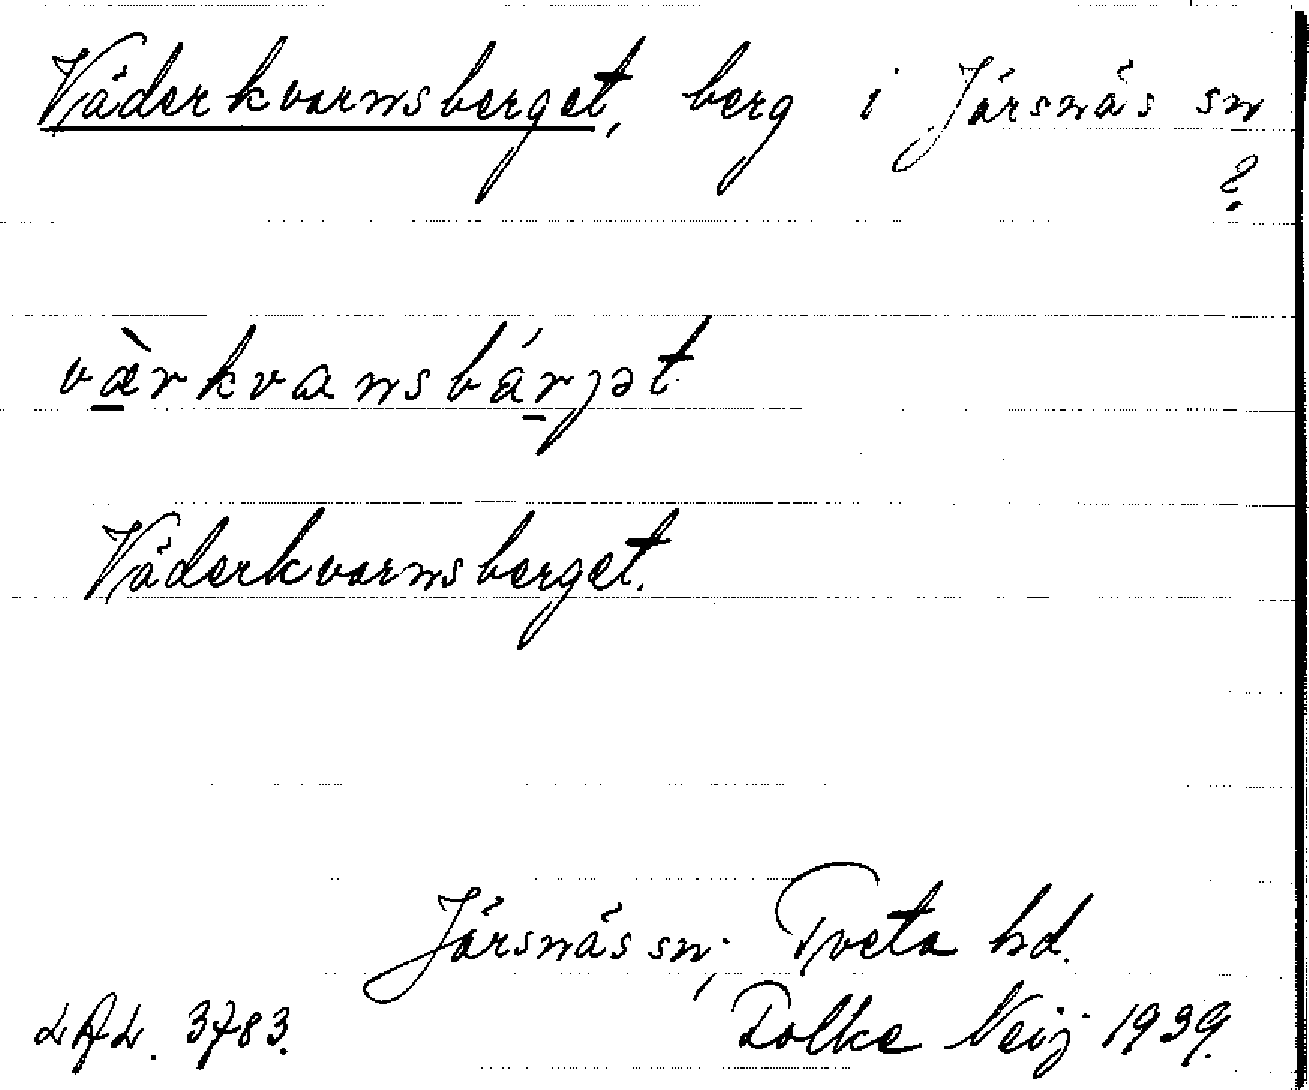 Väderkvarnsberget, berg i Järsnäs sn
?
vàrkvansbárjət
Väderkvarnsberget.
Järsnäs sn; Tveta hd.
LAL. 3783. Folke Neij 1939.